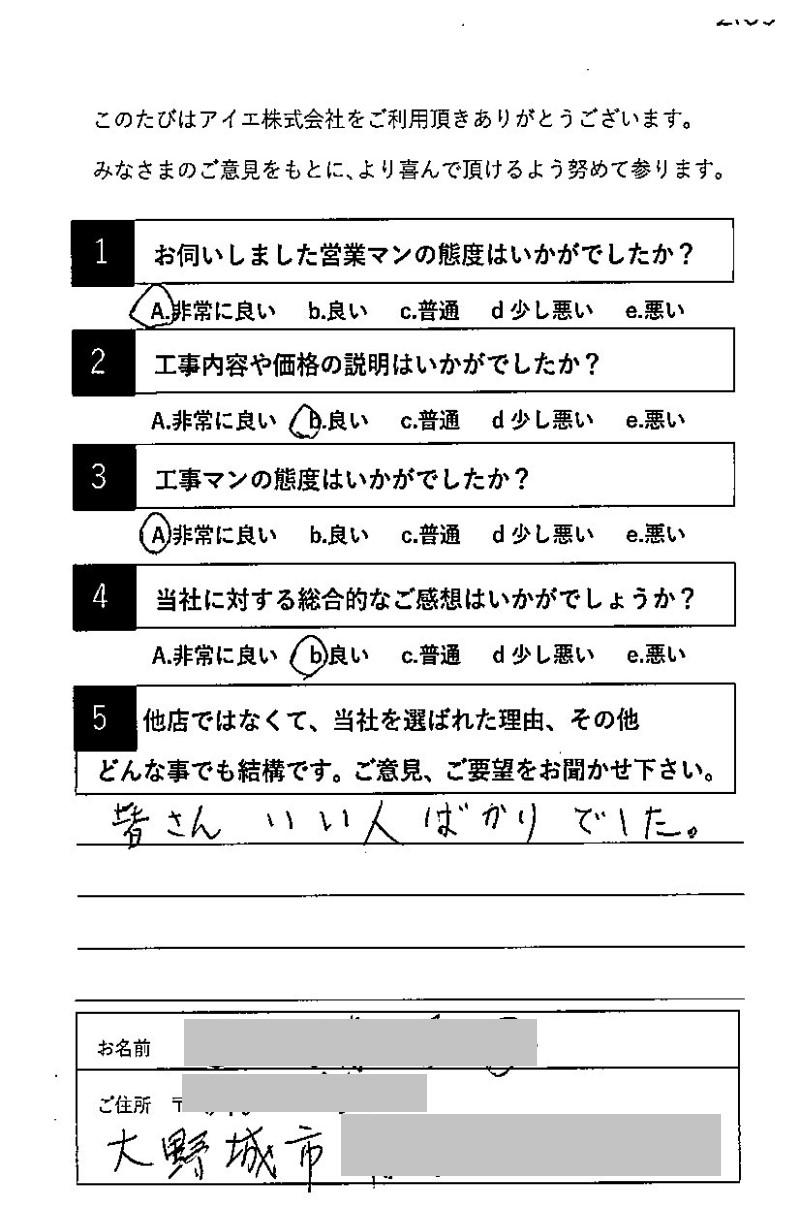 このたびはアイエ株式会社をご利用頂きありがとうございます。
みなさまのご意見をもとに、より喜んで頂けるよう努めて参ります。
1 お伺いしました営業マンの態度はいかがでしたか？
A.非常に良い b.良い c.普通 d 少し悪い e.悪い
2 工事内容や価格の説明はいかがでしたか？
A.非常に良い b.良い c.普通 d 少し悪い e.悪い
3 工事マンの態度はいかがでしたか？
A.非常に良い b.良い c.普通 d 少し悪い e.悪い
4 当社に対する総合的なご感想はいかがでしょうか？
A.非常に良い b.良い c.普通 d 少し悪い e.悪い
5 他店ではなくて、当社を選ばれた理由、その他
どんな事でも結構です。ご意見、ご要望をお聞かせ下さい。
皆さん いい人ばかりでした。
お名前
ご住所 〒
大野城市